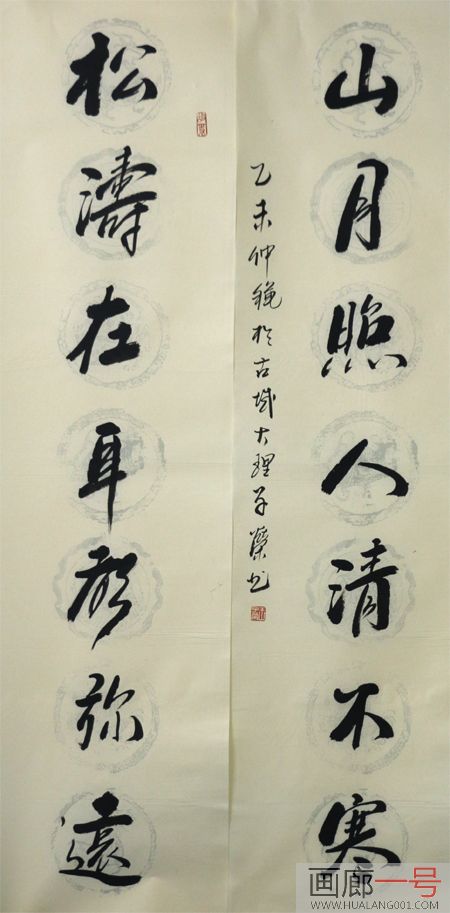 山月照人清不寒
乙未仲穐於古城大理子榮书
松濤在耳聲弥遠
画廊一号
WWW.HUALANG001.COM